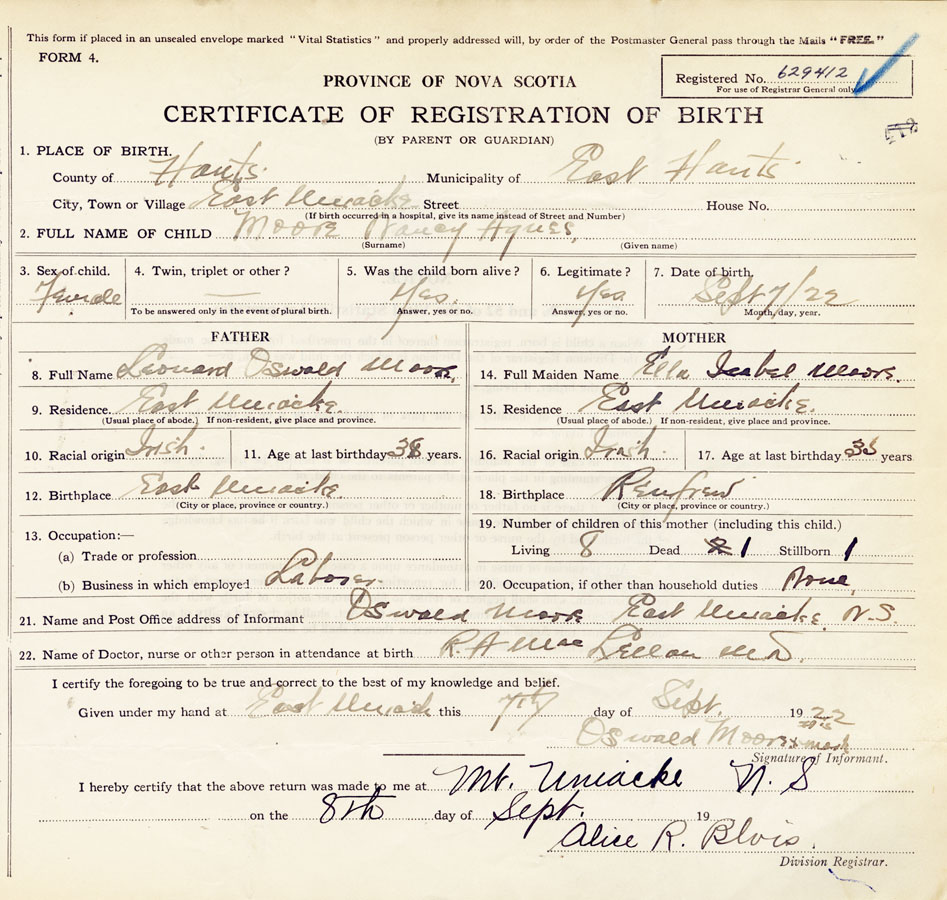 This form if placed in an unsealed envelope marked "Vital Statistics" and properly addressed will, by order of the Postmaster General pass through the Mails "FREE."
FORM 4.
PROVINCE OF NOVA SCOTIA
Registered No. 629412
For use of Registrar General only
CERTIFICATE OF REGISTRATION OF BIRTH
(BY PARENT OR GUARDIAN)
1. PLACE OF BIRTH.
County of Hants Municipality of East Hants
City, Town or Village East Uniacke Street House No.
(If birth occurred in a hospital, give its name instead of Street and Number)
2. FULL NAME OF CHILD Moore Nancy Agnes,
(Surname) (Given name)
3. Sex of child. 4. Twin, triplet or other? 5. Was the child born alive? 6. Legitimate? 7. Date of birth.
Female — Yes. Yes Sept 7/22
To be answered only in the event of plural birth. Answer, yes or no. Answer, yes or no. Month, day, year.
FATHER MOTHER
8. Full Name Leonard Oswald Moore, 14. Full Maiden Name Ella Isabel Moore.
9. Residence. East Uniacke. 15. Residence East Uniacke.
(Usual place of abode.) If non-resident, give place and province. (Usual place of abode.) If non-resident, give place and province.
10. Racial origin Irish. 11. Age at last birthday 38 years. 16. Racial origin Irish. 17. Age at last birthday years
12. Birthplace East Uniacke. 18. Birthplace Renfrew
(City or place, province or country.) (City or place, province or country.)
19. Number of children of this mother (including this child.)
13. Occupation:—
Living 8 Dead 1 Stillborn 1
(a) Trade or profession
(b) Business in which employed Laborer. 20. Occupation, if other than household duties None,
21. Name and Post Office address of Informant Oswald Moore East Uniacke, N.S.
22. Name of Doctor, nurse or other person in attendance at birth R. A MacLellan M.D.
I certify the foregoing to be true and correct to the best of my knowledge and belief.
Given under my hand at East Uniack this 7th day of Sept. 1922
his
Oswald Moore x mark
Signature of Informant.
I hereby certify that the above return was made to me at Mt. Uniacke N. S
on the 8th day of Sept. 19
Alice R. Blois.
Division Registrar.